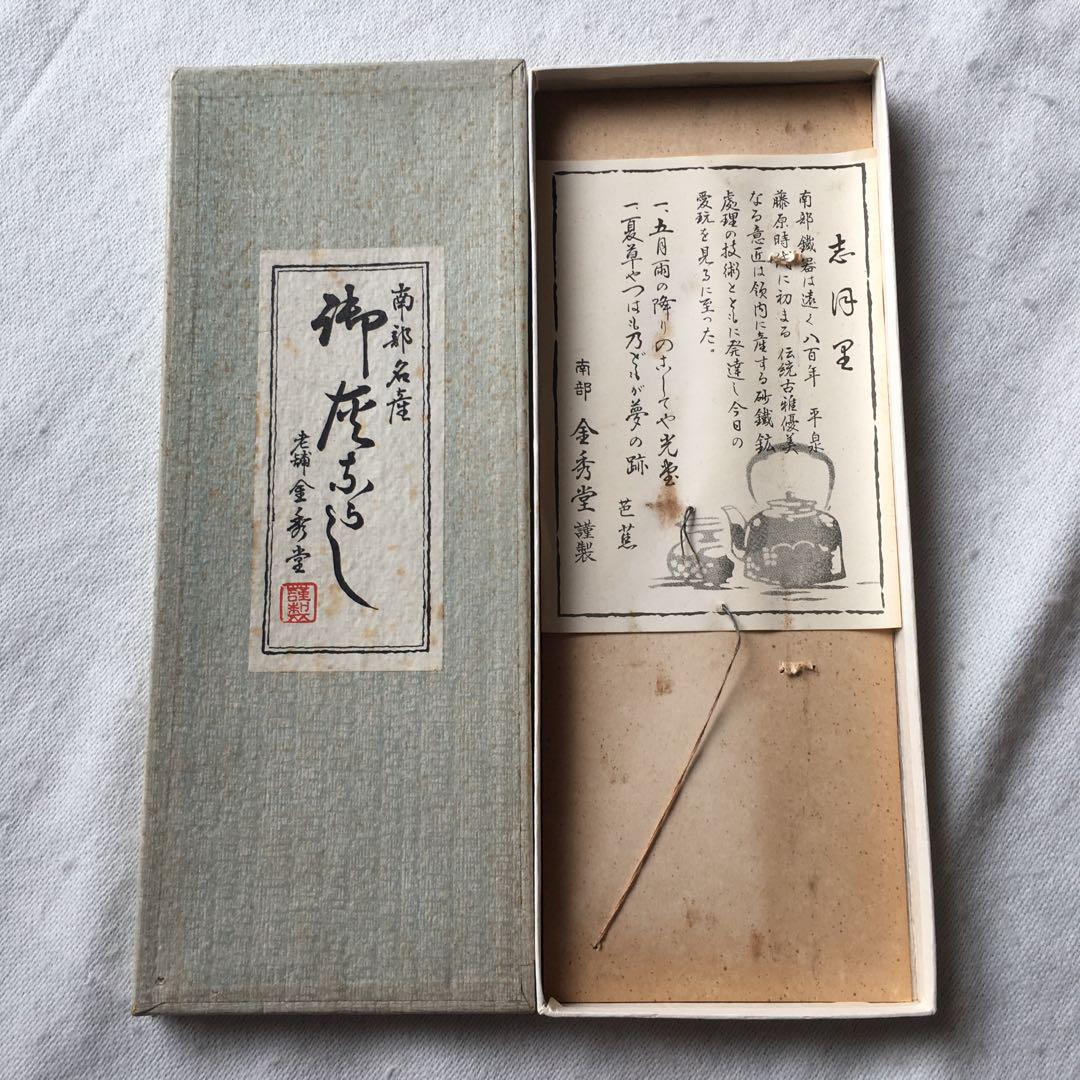 南部名産
御灰ならし
老舗金秀堂
謹製
志保里
南部鐵器は遠く八百年　平泉
藤原時代に初まる伝統古雅優美
なる意匠は領内に産する砂鐵鉱
處理の技術とともに発達し今日の
愛玩を見るに至った。
一、五月雨の降りのこしてや光堂
一、夏草やつはもの乃どもが夢の跡
芭蕉
南部　金秀堂　謹製